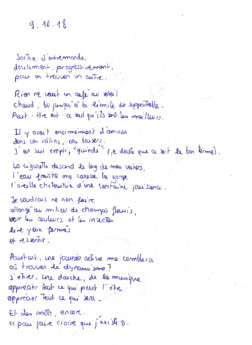 9.10.18
Sortir d'entremonde
doucement, progressivement,
pour en trouver un autre.
Rien ne vaut un café au soleil
chaud, bu jusqu'à la limite du supportable.
Peut-être est-ce ceux qu'ils sont les meilleurs.
Il y avait énormément d'amour
dans un câlins, un baiser.
J'en suis empli, "guindé" (je doute que ce soit le bon terme).
La cigarette descend le long de mes voies,
l'eau fraîche me caresse la gorge
l'oreille chatouillée d'une certaine jouissance.
Je voudrais ne rien faire
allongé au milieu de champs fleuris,
voir les couleurs et les insectes
les yeux fermés
et ressentir.
Pourtant, une journée active me comblera
où trouver le dynamisme?
S'étirer, une douche, de la musique
apprécier tout ce qui peut l'être
apprécier tout ce qui sera.
Et des mots, encore
pour faire croire que j'existe